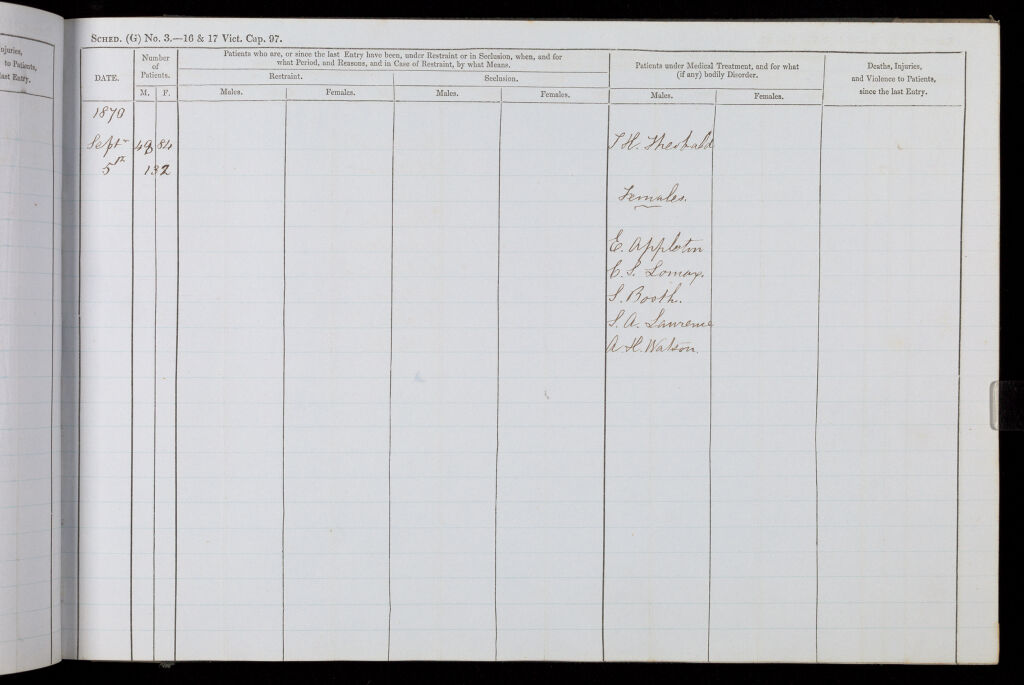 njuries,
to Patients,
last Entry.
SCHED. (G) No. 3.—16 & 17 Vict. Cap. 97.
DATE.
Number
of
Patients.
M. F.
Patients who are, or since the last Entry have been, under Restraint or in Seclusion, when, and for
what Period, and Reasons, and in Case of Restraint, by what Means.
Restraint.
Seclusion.
Males.
Females.
Males.
Females.
Patients under Medical Treatment, and for what
(if any) bodily Disorder.
Males.
Females.
Deaths, Injuries,
and Violence to Patients,
since the last Entry.
1870
Septr 48 84 T H. Theobald
5th 132
Females.
E. Appleton
C. S. Lomax.
S. Booth.
S. A. Lawrence
A. H. Watson.